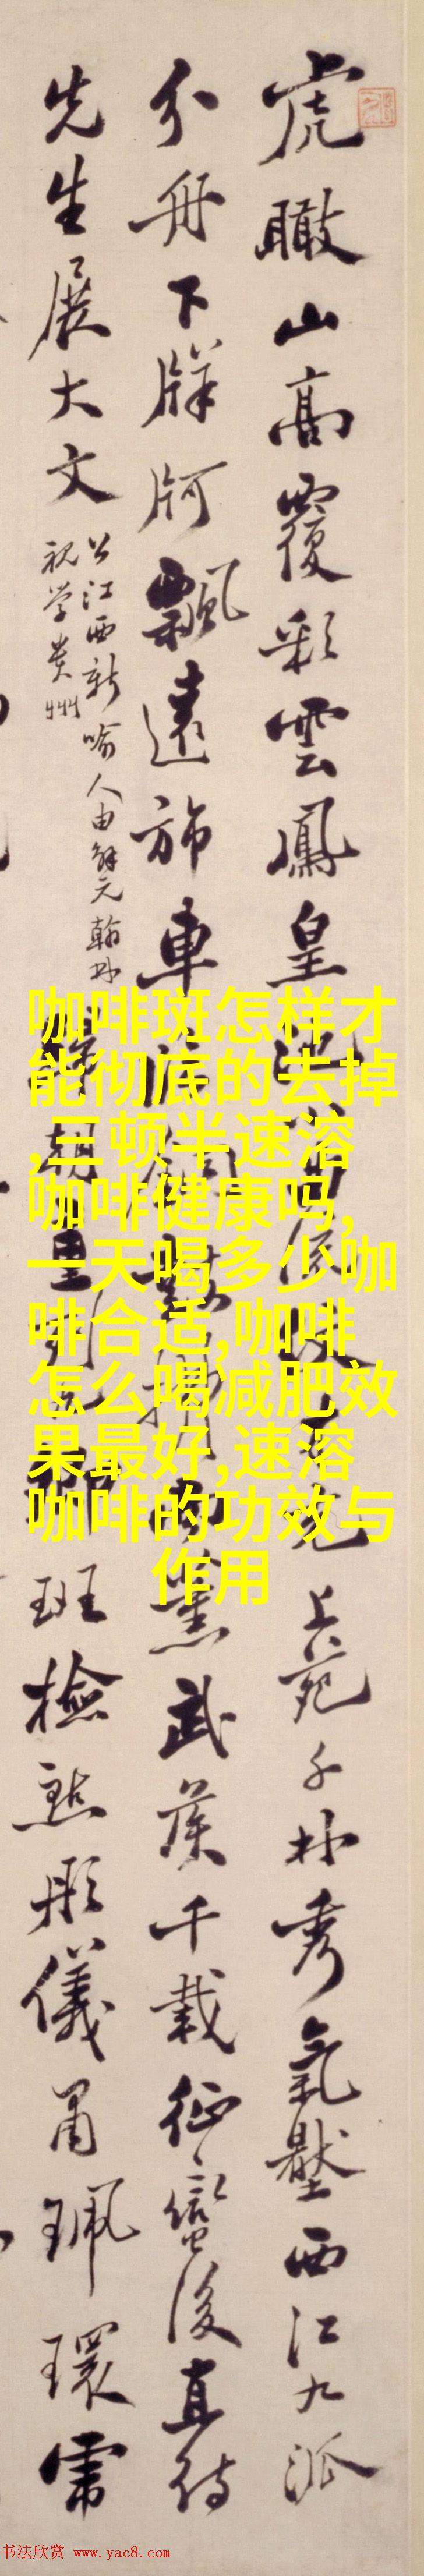 虎瞰山高覆彩雲鳳皇
上苑千林秀氣壓西江九派
分舟下牂牁飄遠旆車
黨武侯千載征蠻後直待
先生展大文
公江西新喻人由解元翰林
視學貴州
班檢點彤儀肅珮環霄
咖啡斑怎样才
能彻底的去掉
,三顿半速溶
咖啡健康吗,
一天喝多少咖
啡合适,咖啡
怎么喝减肥效
果最好,速溶
咖啡的功效与
作用
书法欣赏 www.yac8.com